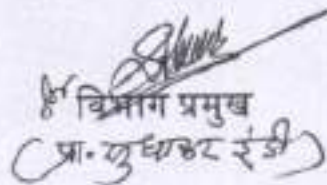 विभाग प्रमुख
(प्रा. सुधाकर इंडी)